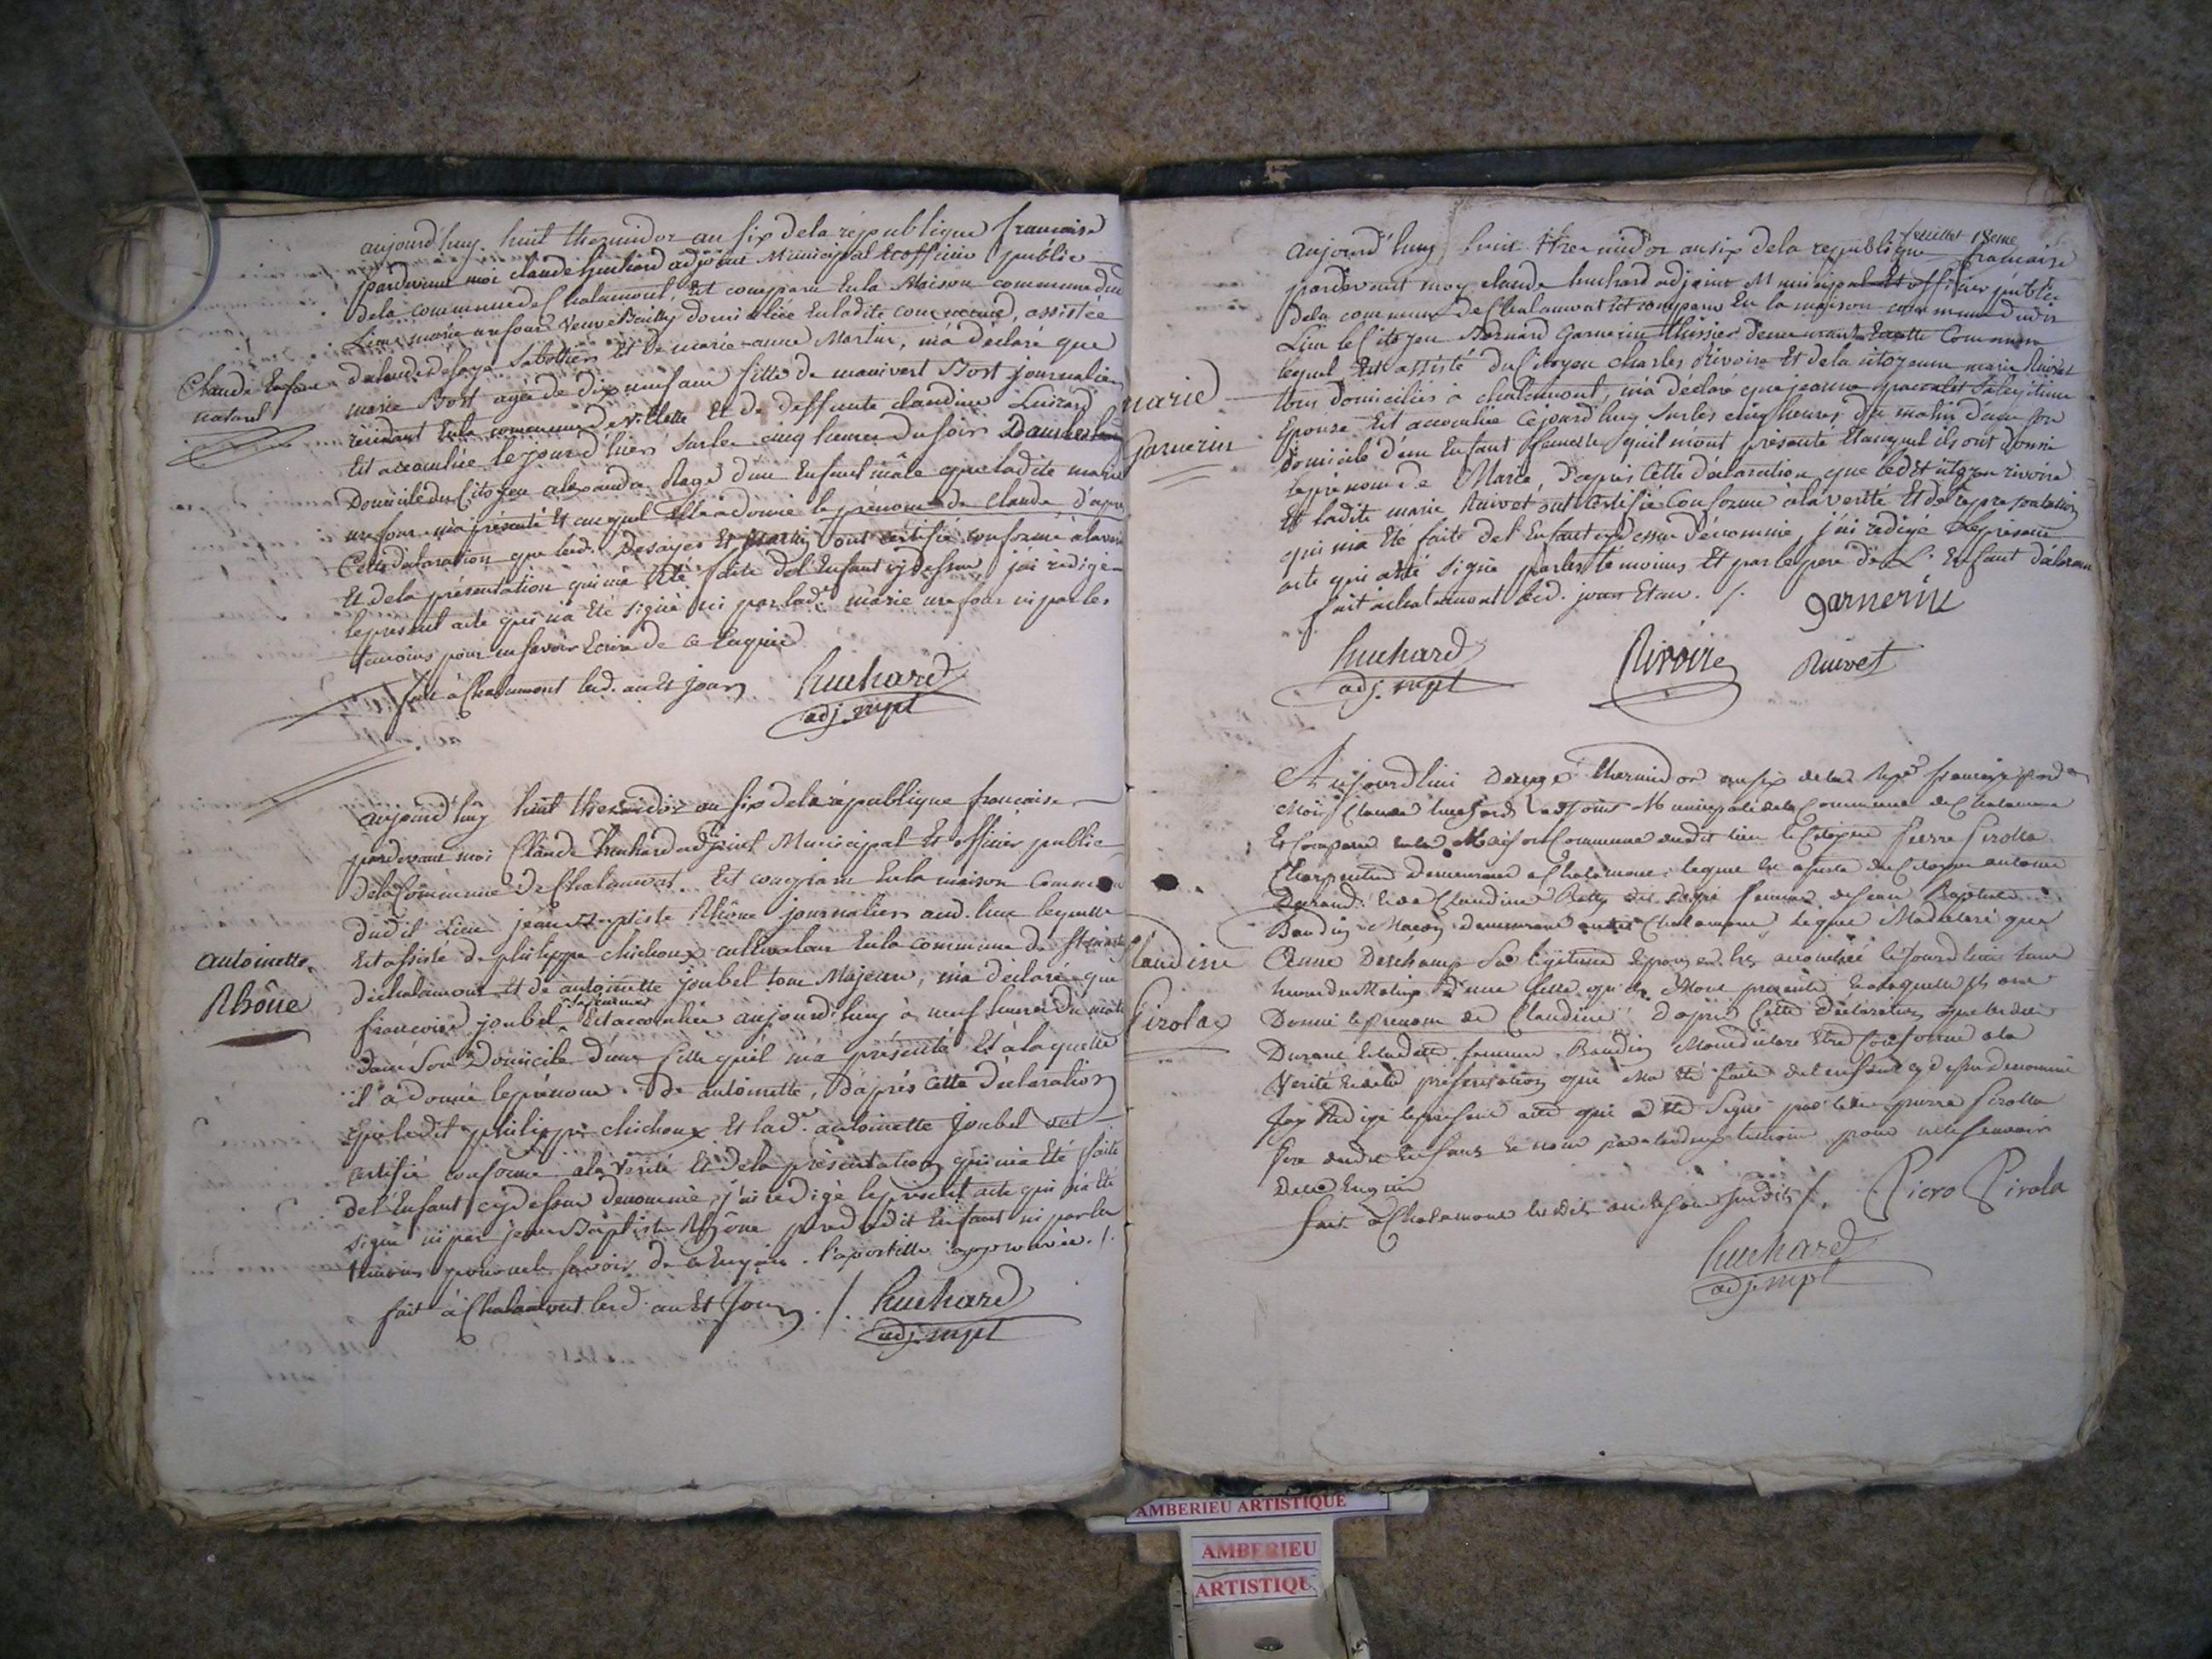 aujourd'huy huit thermidor an six dela république francaise
pardevant moi claude huchard adjoint Municipal et officier public
dela commune de Chalamont, Est comparu En la Maison commune dud.
Lieu marie domiciliée En ladite commune, assistée
Sabottier Et de marie-anne Martin, m'a déclaré que
Claude Enfant
naturel
marie Bost agée de dix neuf ans fille de Bost journalier
résidant En la commune de Villette Et de deffunte claudine
Est accouchée le jour d'hier sur les cinq heures du soir Dans le
Domicile du Citoyen alexandre d'un Enfant mâle que ladite marie
m'a présenté Et auquel Elle a donné le prénom de Claude d'après
Cette déclaration que lesd. Desayes Et Martin ont certifié conforme à la vérité
Et de la présentation qui m'a Eté faite del'Enfant cydessus, j'ai rédigé
le présent acte qui n'a Eté signé ni par lad. marie ni par les
témoins pour ne savoir Ecrire de ce Enquis
fait à Chalamont lesd. an Et jour
huchard
adj. mpl
aujourd'huy huit thermidor an six dela république francaise
pardevant moi Claude huchard adjoint Municipal Et officier public
dela Commune de Chalamont. Est comparu En la maison Commune
dudit Lieu jean Baptiste Rhône journalier aud. lieu lequel
Est assisté de philippe chichoux cultivateur En la commune de
antoinette
Rhône
de chalamont Et de antoinette joubel tous Majeurs, m'a déclaré que
francoise joubel sa femme Est accouchée aujourd'huy à neuf heures du matin
dans son Domicile d'une fille qu'il m'a présenté Et à laquelle
il a donné le prénom de antoinette, d'après cette declaration
que ledit philippe chichoux Et lad. antoinette Joubel ont
certifié conforme à la vérité Et de la présentation qui m'a Eté faite
del'Enfant cydessus denommé, j'ai redigé le présent acte qui n'a Eté
signé ni par jean Baptiste Rhône pere dudit Enfant ni par les
témoins pour ne le savoir de ce Enquis. l'apostille approuvée ./.
fait à Chalamont lesd. an Et Jour ./.
huchard
adj. mpl
feuillet 18eme
aujourd'huy huit thermidor an six dela republique francaise
pardevant moy claude huchard adjoint Municipal Et officier public
dela commune de Chalamont Est comparu En la maison commune dudit
Lieu le Citoyen Bernard Garnerin huissier demeurant En cette Commune
lequel Est assisté du Citoyen Charles Rivoire Et dela citoyenne marie Ruivet
marie
garnerin
tous domiciliés à chalamont, m'a déclaré que jeanne sa légitime
Epouse Est accouchée cejourd'huy sur les cinq heures du matin dans son
domicile d'un Enfant femelle qu'il m'ont présenté Et auquel ils ont donné
le prénom de Marie, d'après Cette déclaration que ledit citoyen rivoire
Et ladite marie Ruivet ont certifié Conforme à la vérité Et de la représentation
qui m'a Eté faite del'Enfant cydessus dénommé, j'ai rédigé le présent
acte qui a Eté signé par les témoins Et par le pere de L'Enfant
fait à chalamont lesd. jour Et an. /.
garnerin
huchard
adj. mpl
Rivoire
Ruivet
Aujourdhui douze thermidor an six de la Rep. française
Moy Claude huchard adjoint Municipal de la Commune de Chalamont
Est Comparu En la Maison Commune dudit lieu le Citoyen Pierre Pirolla
Charpentier demeurant a Chalamont, lequel Est assisté du Citoyen antoine
Durand Et de Claudine femme de Jean Baptiste
Baudin Maçon demeurant audit Chalamont, lequel M'a declaré que
Claudine
Pirola
Anne Deschamp Sa légitime Epouse Est accouchée
heure du Matin d'une fille qu'ils M'ont présenté Et a laquelle ils ont
Donné le Prenom de Claudine. D'après Cette Déclaration que ledit
Durand Et ladite femme Baudin M'ont déclaré Etre Conforme a la
Vérité Et de la présentation qui M'a Eté faite del'enfant cy dessus denommé
Jay Rédigé le présent acte qui a Eté Signé par ledit pierre Pirolla
Pere dudit Enfant Et non par lesdits temoins pour ne le scavoir
De ce Enquis
fait à Chalamont lesdits an Et Jour susdits /.
Piero Pirola
huchard
adj. mpl
AMBERIEU ARTISTIQUE
AMBERIEU
ARTISTIQU